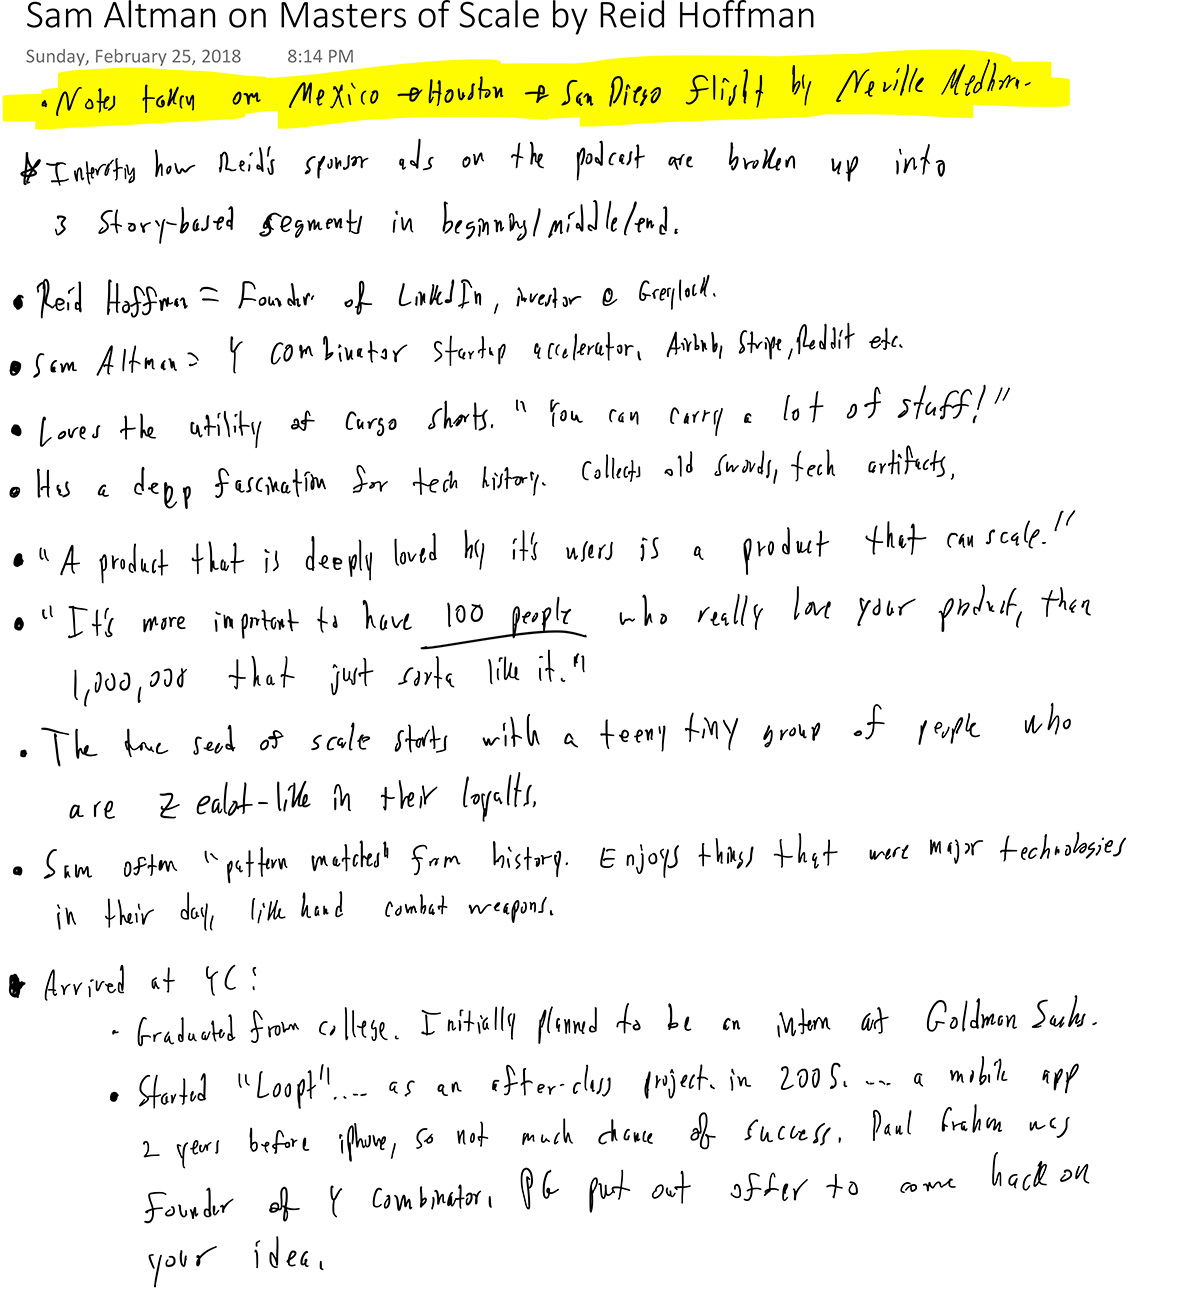 Sam Altman on Masters of Scale by Reid Hoffman
Sunday, February 25, 2018 8:14 PM
• Notes taken on Mexico → Houston → San Diego flight by Neville Medhora.
* Interesting how Reid's sponsor ads on the podcast are broken up into
3 Story-based segments in beginning/middle/end.
• Reid Hoffman = Founder of LinkedIn, investor @ Greylock.
• Sam Altman = Y Combinator startup accelerator, Airbnb, Stripe, Reddit etc.
• Loves the utility of Cargo shorts. "You can carry a lot of stuff!"
• Has a deep fascination for tech history. Collects old swords, tech artifacts,
• "A product that is deeply loved by it's users is a product that can scale."
• "It's more important to have 100 people who really love your product, then
1,000,000 that just sorta like it."
• The true seed of scale starts with a teeny tiny group of people who
are zealot-like in their loyalts.
• Sam often "pattern matches" from history. Enjoys things that were major technologies
in their day, like hand combat weapons.
• Arrived at YC:
- Graduated from college. Initially planned to be an intern at Goldman Sachs.
• Started "Loopt".... as an after-class project. in 2005. ... a mobile app
2 years before iphone, so not much chance of success. Paul Graham was
founder of Y Combinator. PG put out offer to come hack on
your idea.